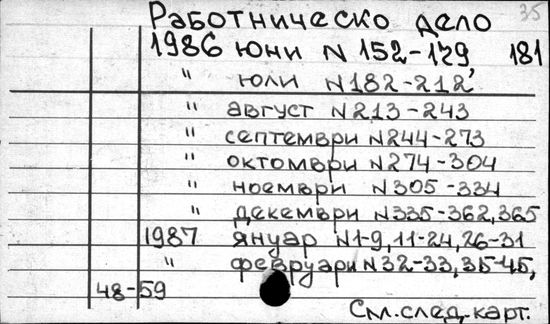 35
Работническо дело
1986 юни N 152-179 181
" юли N182-212
" август N213-243
" септември N244-273
" октомври N274-304
" ноември N305-334
" декември N335-362,365
1987 януар N1-9,11-24,26-31
" февруари N32-33,35-45,
48-59
См.след.карт.